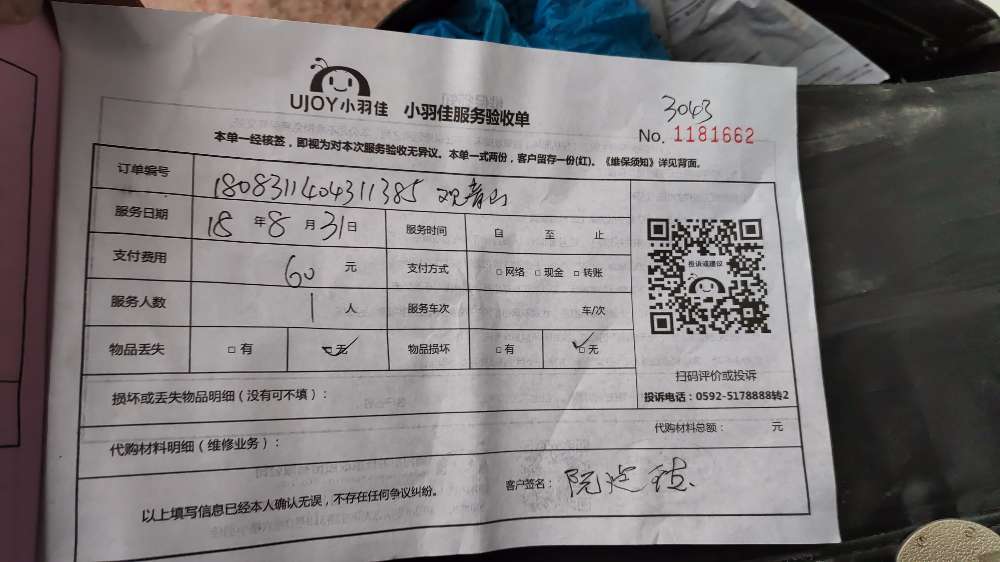 UJOY小羽佳 小羽佳服务验收单
3043
No. 1181662
本单一经核签，即视为对本次服务验收无异议。本单一式两份，客户留存一份(红)。《维保须知》详见背面。
订单编号 1808311404311385 观音山
服务日期 18 年 8 月 31 日 服务时间 自 至 止
支付费用 60 元 支付方式 □ 网络 □ 现金 □ 转账
服务人数 1 人 服务车次 车/次
物品丢失 □ 有 □ 无 物品损坏 □ 有 □ 无
投诉或建议
扫码评价或投诉
投诉电话：0592-5178888转2
损坏或丢失物品明细（没有可不填）：
代购材料明细（维修业务）： 代购材料总额： 元
以上填写信息已经本人确认无误，不存在任何争议纠纷。 客户签名： 阮